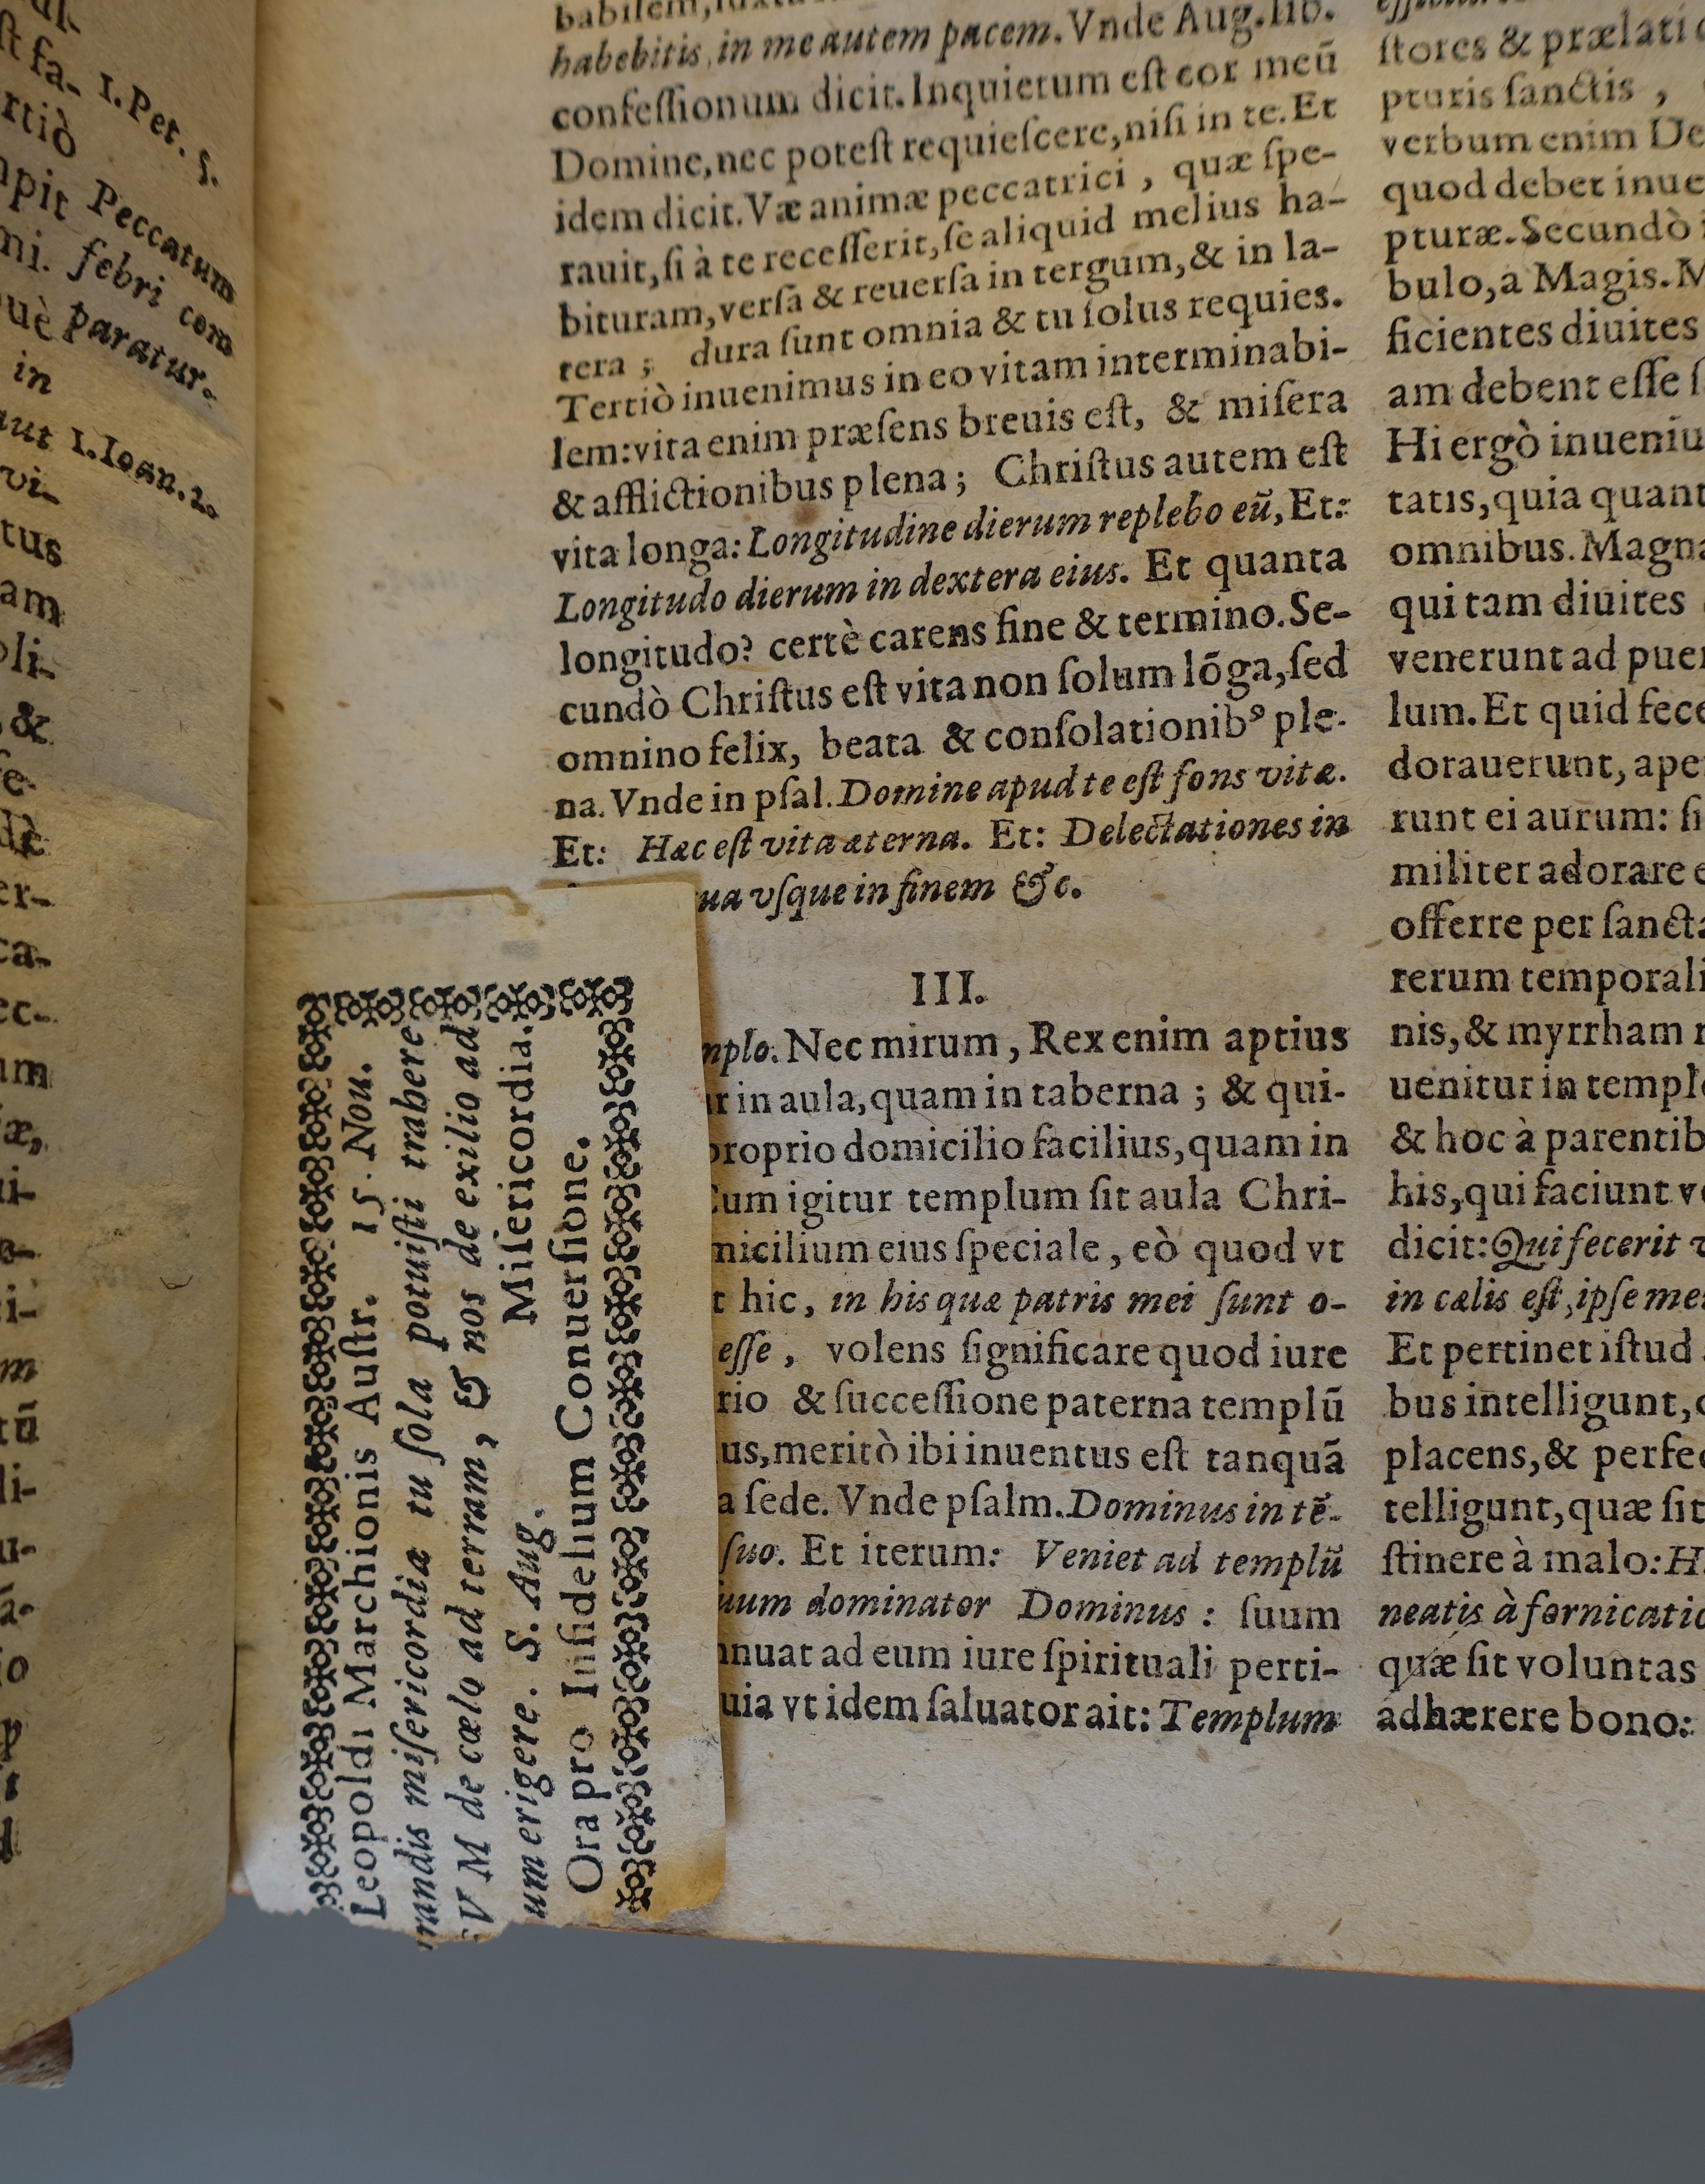 ſt fa-
rtiò
1. Pet. 5.
Peccatum
ni. febri com
uè paratur.
in
aut 1. Ioan. 2.
vi-
tus
am
oli-
&
ſe-
dè
er-
ca-
ec-
um
æ,
ui-
m
tũ
li-
u-
habebitis, in me autem pacem. Vnde Aug. lib.
confeſſionum dicit. Inquietum eſt cor meũ
Domine, nec poteſt requieſcere, niſi in te. Et
idem dicit. Væ animæ peccatrici, quæ ſpe-
rauit, ſi à te receſſerit, ſe aliquid melius ha-
bituram, verſa & reuerſa in tergum, & in la-
tera ; dura ſunt omnia & tu ſolus requies.
Tertiò inuenimus in eo vitam interminabi-
lem: vita enim præſens breuis eſt, & miſera
& afflictionibus plena; Chriſtus autem eſt
vita longa: Longitudine dierum replebo eũ, Et:
Longitudo dierum in dextera eius. Et quanta
longitudo? certè carens fine & termino. Se-
cundò Chriſtus eſt vita non ſolum lõga, ſed
omnino felix, beata & conſolationibꝰ ple-
na. Vnde in pſal. Domine apud te eſt fons vitæ.
Et: Hæc eſt vita æterna. Et: Delectationes in
ua vſque in finem &c.
III.
mplo. Nec mirum, Rex enim aptius
r in aula, quam in taberna ; & qui-
proprio domicilio facilius, quam in
Cum igitur templum ſit aula Chri-
micilium eius ſpeciale, eò quod vt
t hic, in his quæ patris mei ſunt o-
eſſe, volens ſignificare quod iure
rio & ſucceſſione paterna templũ
us, meritò ibi inuentus eſt tanquã
a ſede. Vnde pſalm. Dominus in tẽ-
ſuo. Et iterum: Veniet ad templũ
uum dominator Dominus : ſuum
nnuat ad eum iure ſpirituali perti-
uia vt idem ſaluator ait: Templum
ſtores & prælati
pturis ſanctis,
verbum enim De
quod debet inue
pturæ. Secundò
bulo, a Magis. M
ficientes diuites
am debent eſſe ſ
Hi ergò inueniu
tatis, quia quant
omnibus. Magna
qui tam diuites
venerunt ad puer
lum. Et quid fece
dorauerunt, ape
runt ei aurum: ſi
militer adorare e
offerre per ſancta
rerum temporali
nis, & myrrham
uenitur in templo
& hoc à parentib
his, qui faciunt vo
dicit: Qui fecerit v
in cælis eſt, ipſe me
Et pertinet iſtud
bus intelligunt,
placens, & perfec
telligunt, quæ ſit
ſtinere à malo: H
neatis à fornicatio
quæ ſit voluntas
adhærere bono:
Leopoldi Marchionis Auſtr. 15. Nou.
randis miſericordiæ tu ſola potuiſti trahere
V M de cælo ad terram, & nos de exilio ad
um erigere. S. Aug. Miſericordia.
Ora pro Infidelium Conuerſione.